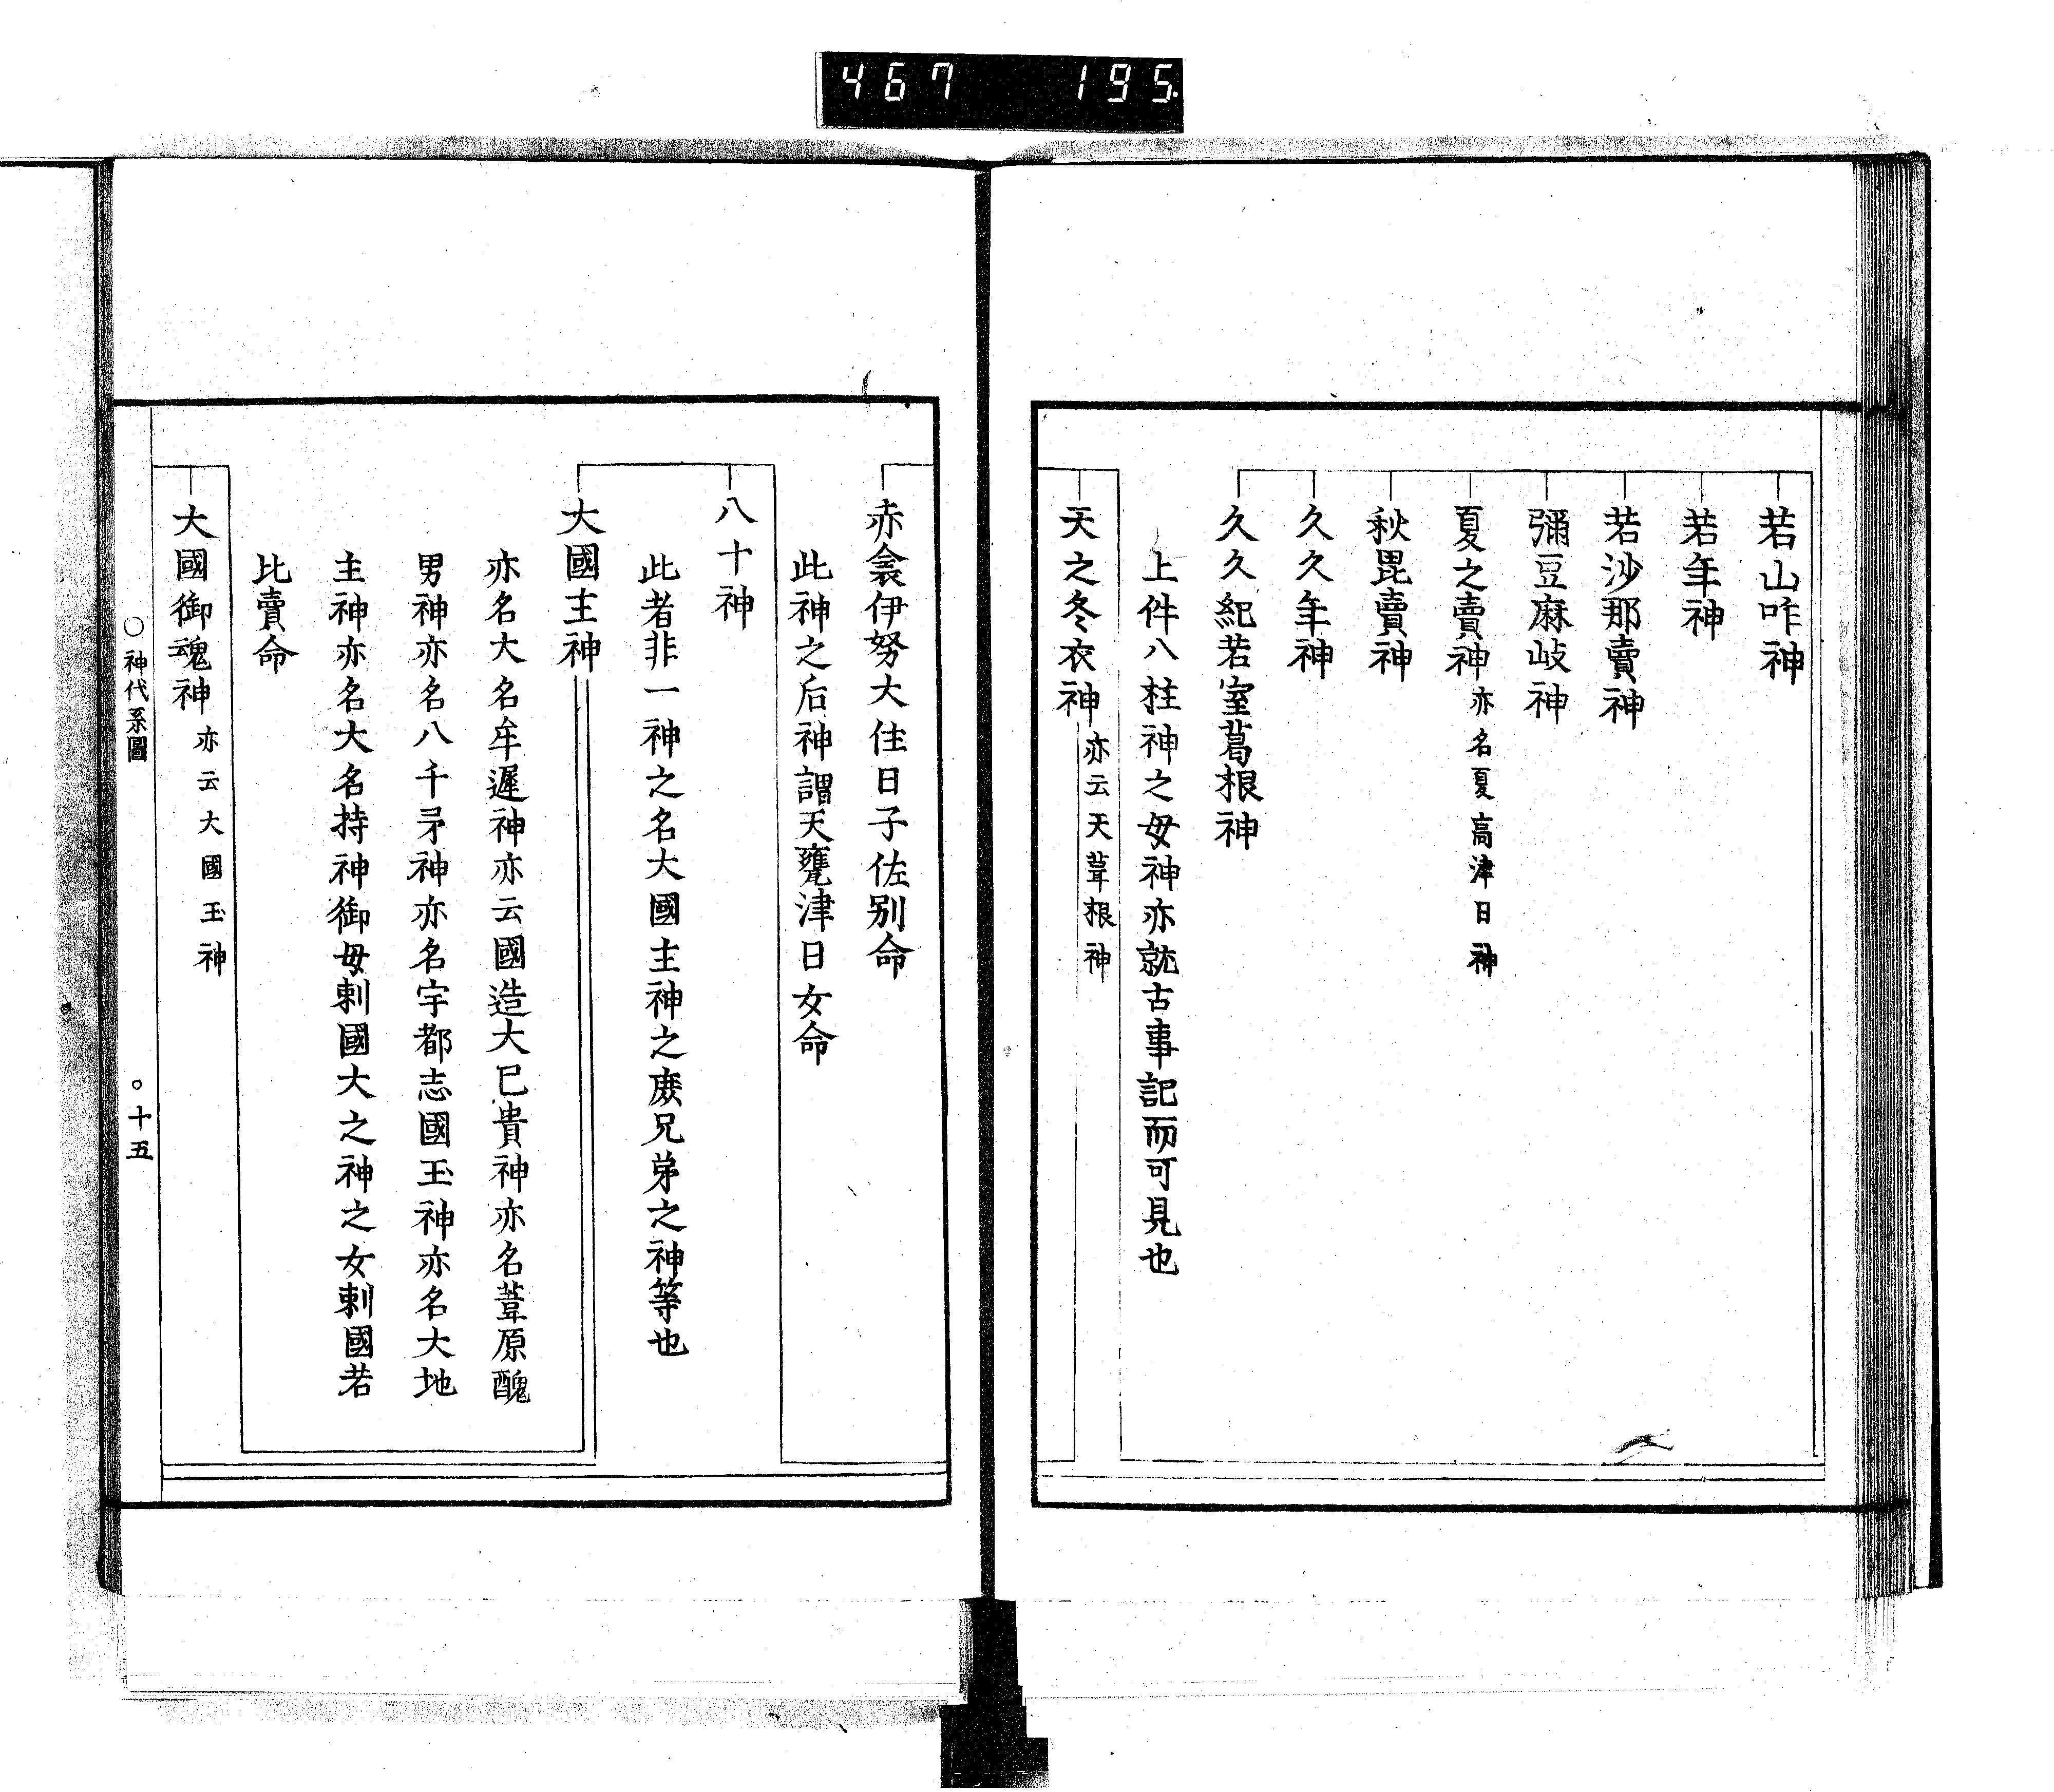 467 195
若山咋神
若年神
若沙那賣神
彌豆麻岐神
夏之賣神亦名夏高津日神
秋毘賣神
久久年神
久久紀若室葛根神
上件八柱神之母神亦就古事記而可見也
天之冬衣神亦云天葺根神
赤衾伊努大住日子佐別命
此神之后神謂天甕津日女命
八十神
此者非一神之名大國主神之庶兄弟之神等也
大國主神
亦名大名牟遲神亦云國造大已貴神亦名葦原醜
男神亦名八千矛神亦名宇都志國玉神亦名大地
主神亦名大名持神御母刺國大之神之女刺國若
比賣命
大國御魂神亦云大國玉神
○神代系圖 ○十五